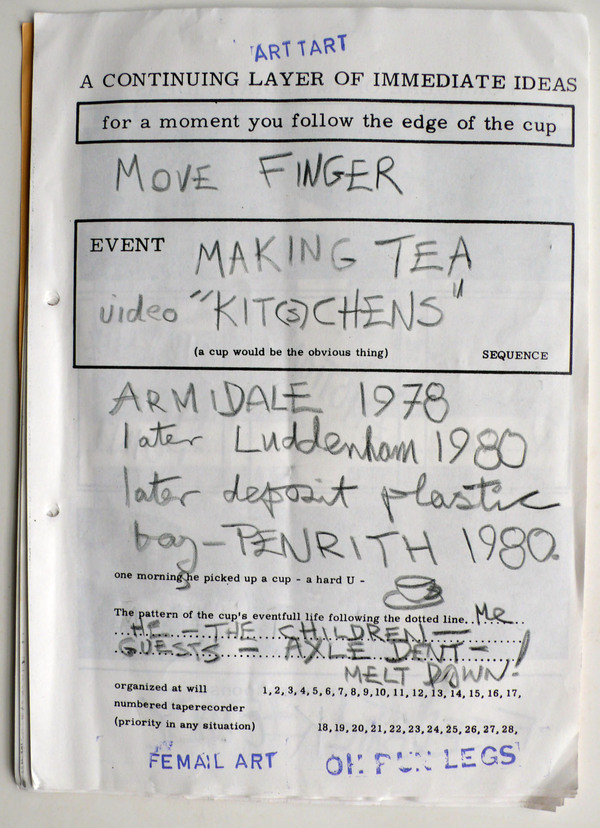 ART TART
A CONTINUING LAYER OF IMMEDIATE IDEAS
for a moment you follow the edge of the cup
MOVE FINGER
EVENT MAKING TEA
video "KIT(S)CHENS"
(a cup would be the obvious thing) SEQUENCE
ARMIDALE 1978
later Luddenham 1980
later deposit plastic
bag - PENRITH 1980.
one morning he picked up a cup - a hard U -
The pattern of the cup's eventfull life following the dotted line.. Me
HE - THE CHILDREN -
GUESTS - AXLE DENT - !
MELT DOWN!
organized at will 1, 2, 3, 4, 5, 6, 7, 8, 9, 10, 11, 12, 13, 14, 15, 16, 17,
numbered taperecorder
(priority in any situation) 18, 19, 20, 21, 22, 23, 24, 25, 26, 27, 28,
FEMAIL ART LEGS